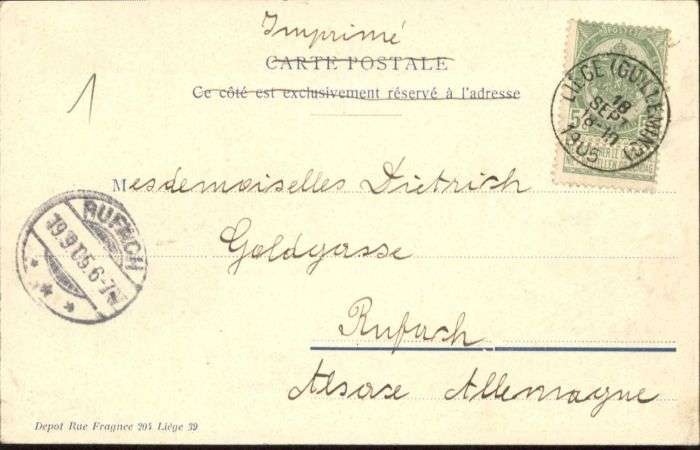 Imprimé
CARTE POSTALE
Ce côté est exclusivement réservé à l'adresse
1
POSTES
5
LIÉGE (GUILLEMINS)
18
SEPT
1905
Mesdemoiselles Dietrich
Goldgasse
Rufach
Alsase Allemagne
RUFACH
19.9.05.6-7N
Depot Rue Fragnee 204 Liége 39